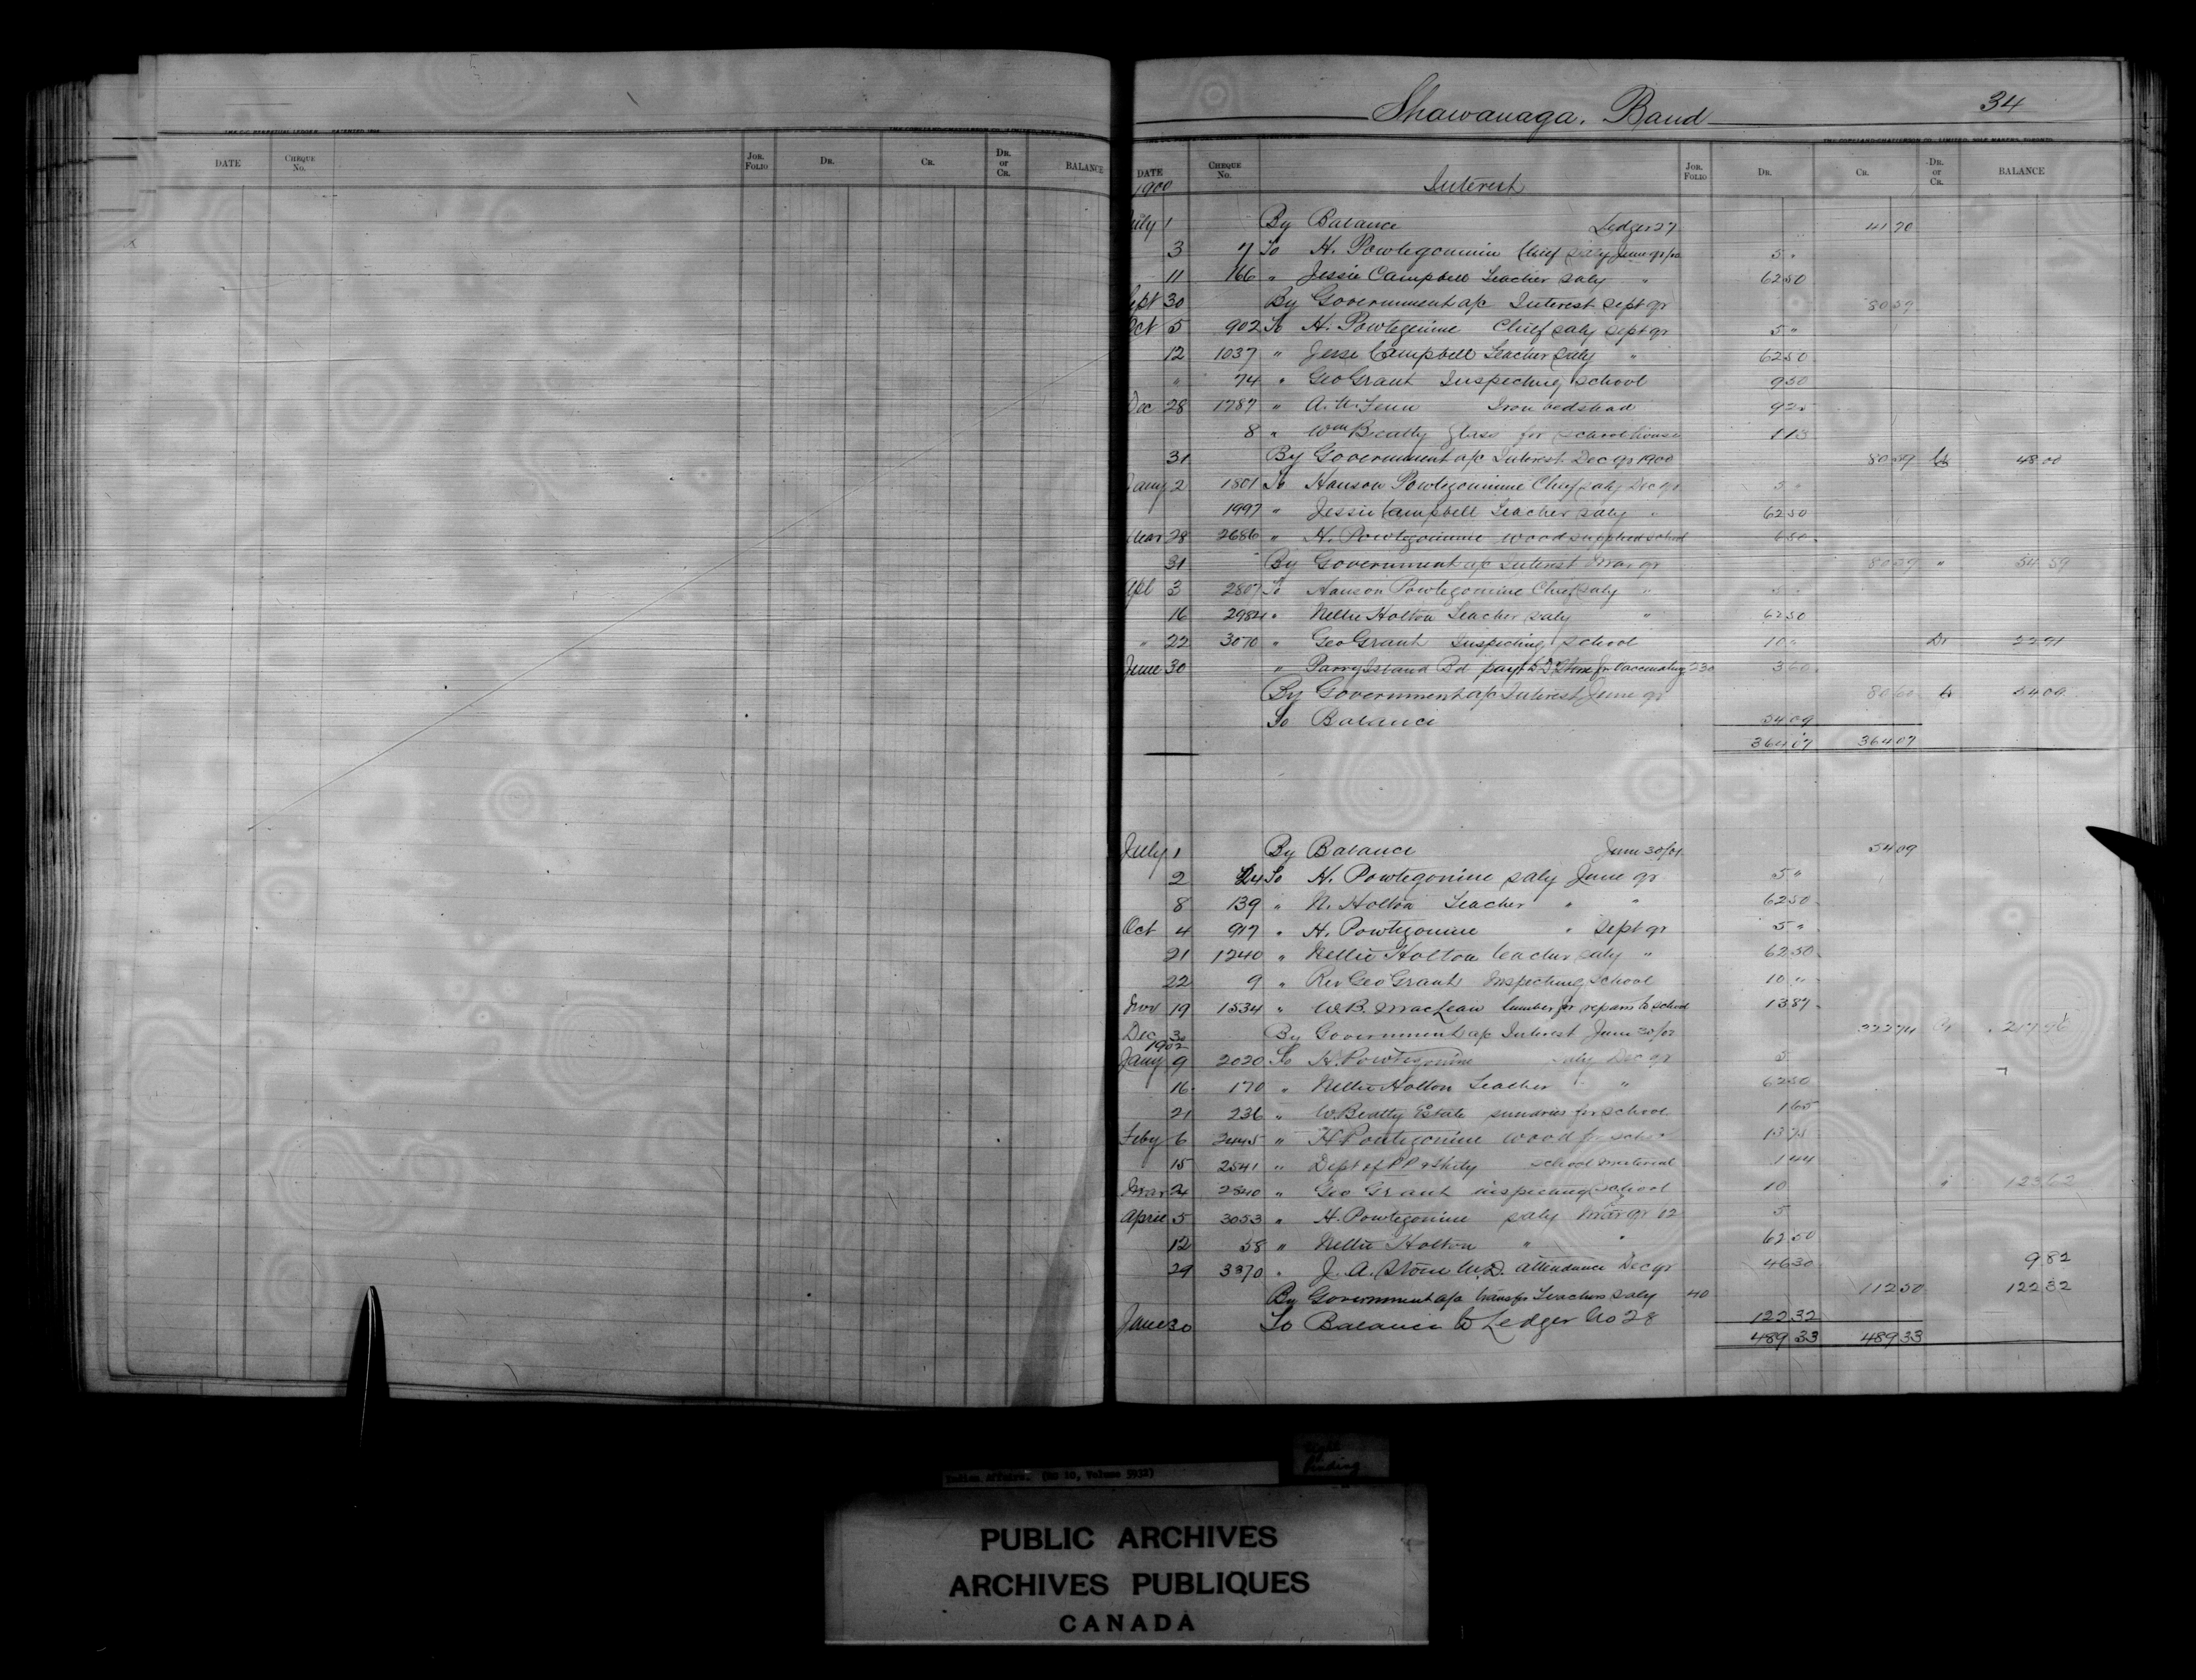 Shawanaga. Band 34
DATE Cheque No. Jor. Folio Dr. Cr. Dr. or Cr. BALANCE
DATE Cheque No. Jor. Folio Dr. Cr. Dr. or Cr. BALANCE
1900 Interest
July 1 By Balance Ledger 27 41 70
3 7 To H. Powtegominie Chief Saly June qr/00 5 "
11 166 " Jessie Campbell Teacher Saly " 62 50
Sept 30 By Government a/c Interest Sept qr 80 59
Oct 5 902 To H. Powtegimine Chief Saly Sept qr 5 "
12 1037 " Jesse Campbell Teacher Saly " 62 50
" 74 " Geo Grant Inspecting School 9 50
Dec 28 1787 " Iron bedstead 9 25
8 " Wm Beatty glass for schoolhouse 1 13
31 By Government a/c Interest Dec qr 1900 80 59 Cr 48 00
Jany 2 1801 To Hanson Powtegominie Chief Saly Dec qr 5 "
1997 " Jessie Campbell Teacher Saly " 62 50
Mar 28 2686 " H. Powtegominie wood supplied school 6 50
31 By Government a/c Interest Mar qr 80 59 " 54 59
Apl 3 2807 To Hanson Powtegomine Chief Saly " 5 "
16 2984 " Nellie Holton Teacher Saly " 62 50
" 22 3070 " Geo Grant Inspecting School 10 " Dr 22 91
June 30 " Parry Island Bd payt Stone for Vaccinating 230 3 60
By Government a/c Interest June qr 80 60 Cr 54 09
To Balance 54 09
364 07 364 07
July 1 By Balance June 30/01 54 09
2 24 To H. Powtegonine saly June qr 5 "
8 139 " N. Holton Teacher " " 62 50
Oct 4 917 " H. Powtegonine " Sept qr 5 "
21 1240 " Nellie Holton teacher saly " 62 50
22 9 " Rev Geo Grant Inspecting School 10 "
Nov 19 1534 " W.B. MacLean lumber for repairs to school 13 87
Dec 30 By Government a/c Interest June 30/02 322 74 Cr 217 96
1902
Jany 9 2020 To H. Powtegonine saly Dec qr 5
16 170 " Nellie Holton Teacher " " 62 50
21 236 " W Beatty Estate sundries for school 1 65
Feby 6 2445 " H Powtegonine wood for school 13 75
15 2541 " Dept of P P & Staty school material 1 44
Mar 24 2840 " Geo Grant inspecting school 10 " 123 62
April 5 3053 " H. Powtegonine saly Mar qr 02 5
12 58 " Nellie Holton " " 62 50
29 3370 " J. A. Stone M.D. attendance Dec qr 46 30 9 82
By Government a/c transfer Teachers saly 40 112 50 122 32
June 30 To Balance to Ledger No 28 122 32
489 33 489 33
Indian Affairs. (RG 10, Volume 5932)
Tight Binding
PUBLIC ARCHIVES
ARCHIVES PUBLIQUES
CANADA